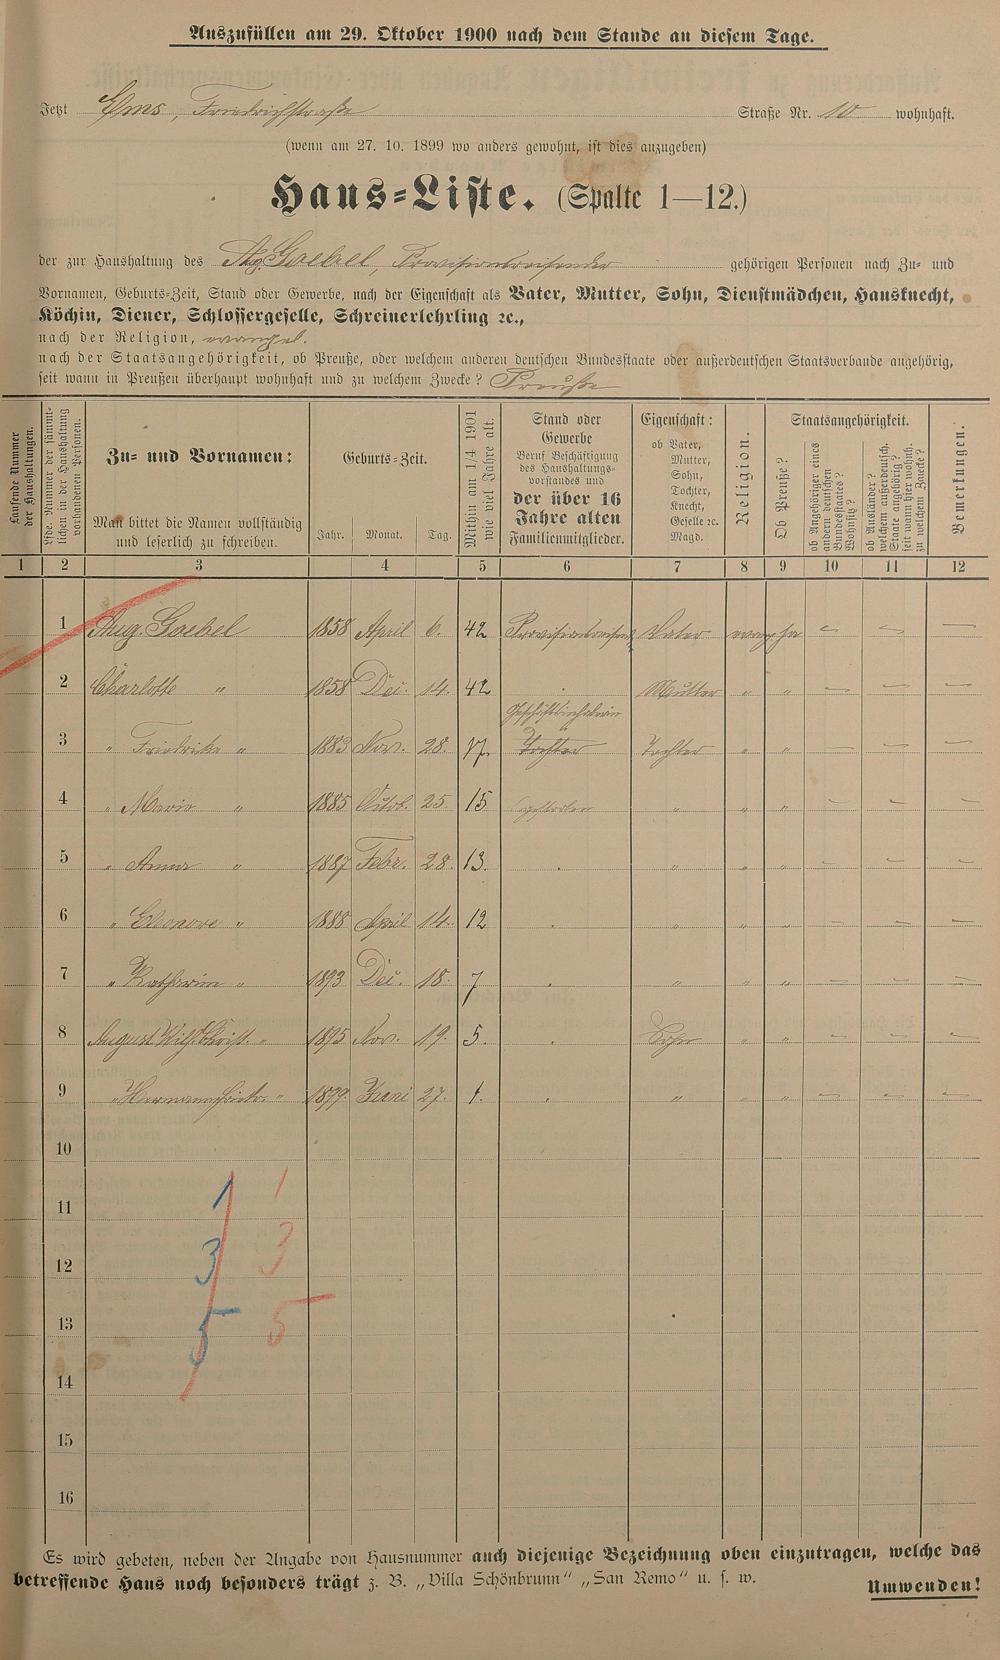 Auszufüllen am 29. Oktober 1900 nach dem Stande an diesem Tage.
Jetzt Ems, Friedrichstraße Straße Nr. 10 wohnhaft.
(wenn am 27. 10. 1899 wo anders gewohnt, ist dies anzugeben)
Haus-Liste. (Spalte 1—12.)
der zur Haushaltung des Aug. Goebel, Provisionsreisender gehörigen Personen nach Zu- und
Vornamen, Geburts-Zeit, Stand oder Gewerbe, nach der Eigenschaft als Vater, Mutter, Sohn, Dienstmädchen, Hausknecht,
Köchin, Diener, Schlossergeselle, Schreinerlehrling ꝛc.,
nach der Religion, evangel.
nach der Staatsangehörigkeit, ob Preuße, oder welchem anderen deutschen Bundesstaate oder außerdeutschen Staatsverbande angehörig,
seit wann in Preußen überhaupt wohnhaft und zu welchem Zwecke? Preuße
Laufende Nummer der Haushaltungen.
Lfde. Nummer der sämmtlichen in der Haushaltung vorhandenen Personen.
Zu- und Vornamen:
Man bittet die Namen vollständig
und leserlich zu schreiben.
Geburts-Zeit.
Jahr. Monat. Tag.
Mithin am 1/4 1901 wie viel Jahre alt.
Stand oder
Gewerbe
Beruf Beschäftigung
des Haushaltungs-
vorstandes und
der über 16
Jahre alten
Familienmitglieder.
Eigenschaft:
ob Vater,
Mutter,
Sohn,
Tochter,
Knecht,
Geselle ꝛc.
Magd.
Religion.
Staatsangehörigkeit.
Ob Preuße?
ob Angehöriger eines andern deutschen Bundesstaates? Wohnsitz?
ob Ausländer? welchem außerdeutsch. Staate angehörig? seit wann hier wohnh. zu welchem Zwecke?
Bemerkungen.
1 2 3 4 5 6 7 8 9 10 11 12
1 Aug. Goebel 1858 April 6. 42 Provisionsreisend. Vater evang. ja — — —
2 Charlotte " 1858 Dec. 14. 42 . Mutter " " — — —
Geschäftsinhaberin
3 " Friedricke " 1883 Nov. 28. 17. Tochter Tochter " " — — —
4 " Marie " 1885 Octob. 25. 15 " " " — — —
5 " Anna " 1887 Febr. 28. 13. . " " " — — —
6 " Eleonore " 1888 April 14. 12 . " " " — — —
7 " Katharine " 1893 Dec. 18. 7 . " " " — — —
8 August Wilh. Christ. " 1895 Nov. 19. 5. . Sohn " " — — —
9 " Hermann " 1899. Juni 27. 1. . " " " — — —
10
11
12
13
14
15
16
1 1
3 3
5 5
Es wird gebeten, neben der Angabe von Hausnummer auch diejenige Bezeichnung oben einzutragen, welche das
betreffende Haus noch besonders trägt z. B. „Villa Schönbrunn" „San Remo" u. s. w.
Umwenden!